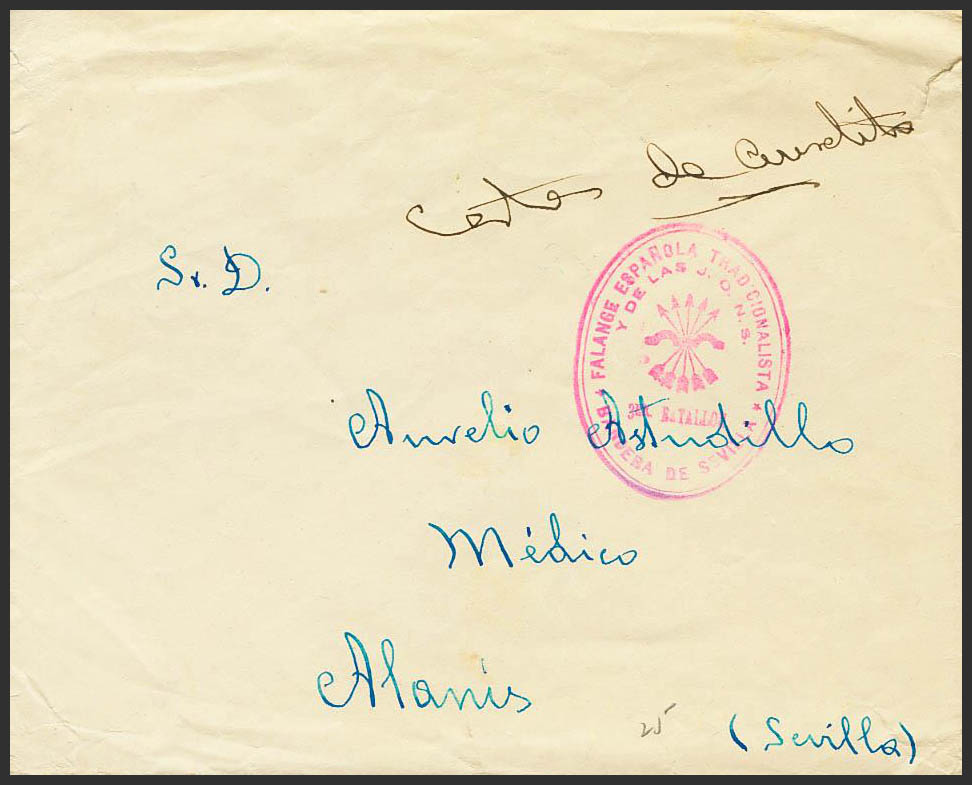 de
Sr. D.
★ FALANGE ESPAÑOLA TRADICIONALISTA ★
Y DE LAS J. O. N. S.
BATALLON
DE SEVILLA
Aurelio Astudillo
Médico
Alanis
25
(Sevilla)